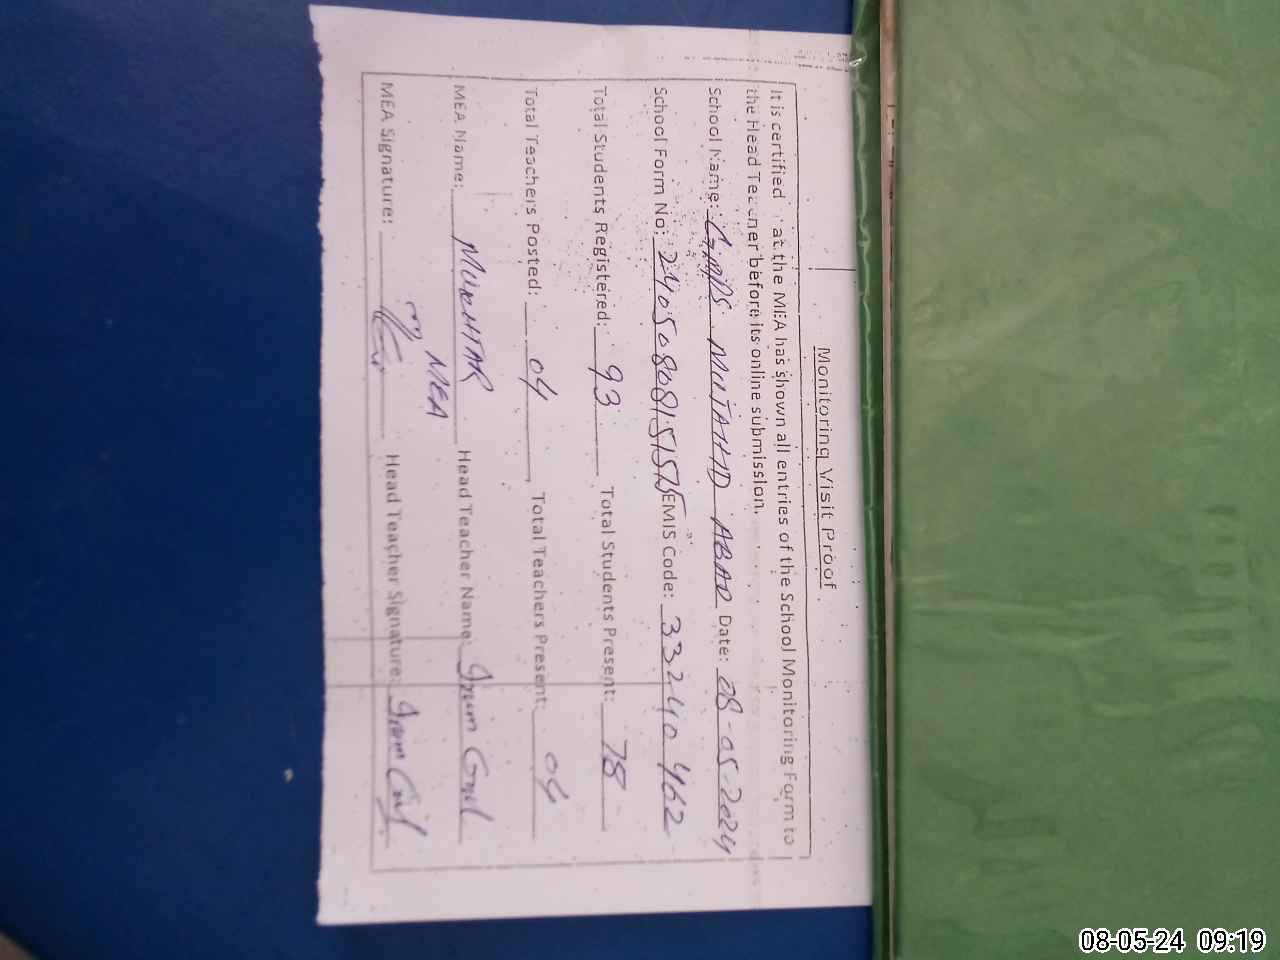 Monitoring Visit Proof
It is certified at the MEA has shown all entries of the School Monitoring Form to
the Head Teacher before its online submission.
School Name: GMPS MUTAHID ABAD Date: 08-05-2024
School Form No: EMIS Code: 33240462
Total Students Registered: 93 Total Students Present: 78
Total Teachers Posted: 04 Total Teachers Present: 04
MEA Name: MUKHTAR Head Teacher Name: Irum Gul
MEA
MEA Signature: Head Teacher Signature: Irum Gul
08-05-24 09:19